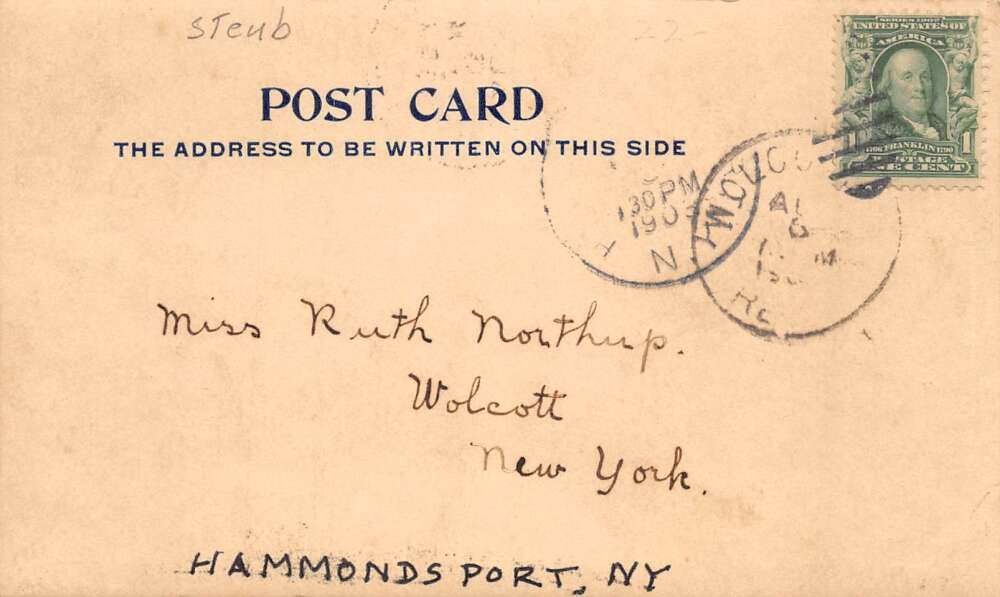 steub
POST CARD
THE ADDRESS TO BE WRITTEN ON THIS SIDE
SERIES 1902
UNITED STATES OF
AMERICA
1706 FRANKLIN 1790
POSTAGE
1
ONE CENT
130 PM
N.
Miss Ruth Northup.
Wolcott
New York.
HAMMONDSPORT, NY